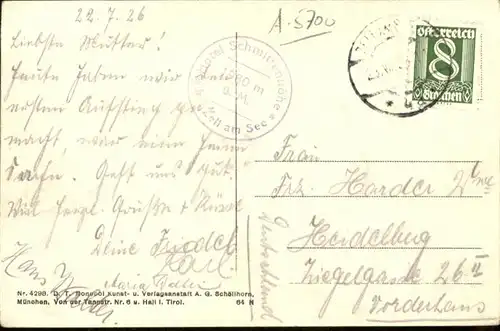 22.7.26
A-5700
Liebste Mutter!
Heute haben wir den
ersten Aufstieg ge
macht, war eine
Geht uns gut.
Viel herzl. Grüße &
Deine Friedel
Hotel Schmittenhöhe
m
ü. M.
Zell am See
österreich
8
Groschen
Frau
Frz. Harder
Heidelberg
Ziegelgasse 26 II
Vorderhaus
Deutschland
Nr. 4298. D. T. Monopol Kunst- u. Verlagsanstalt A. G. Schöllhorn,
München, Von der Tannstr. Nr. 6 u. Hall i. Tirol. 64 N